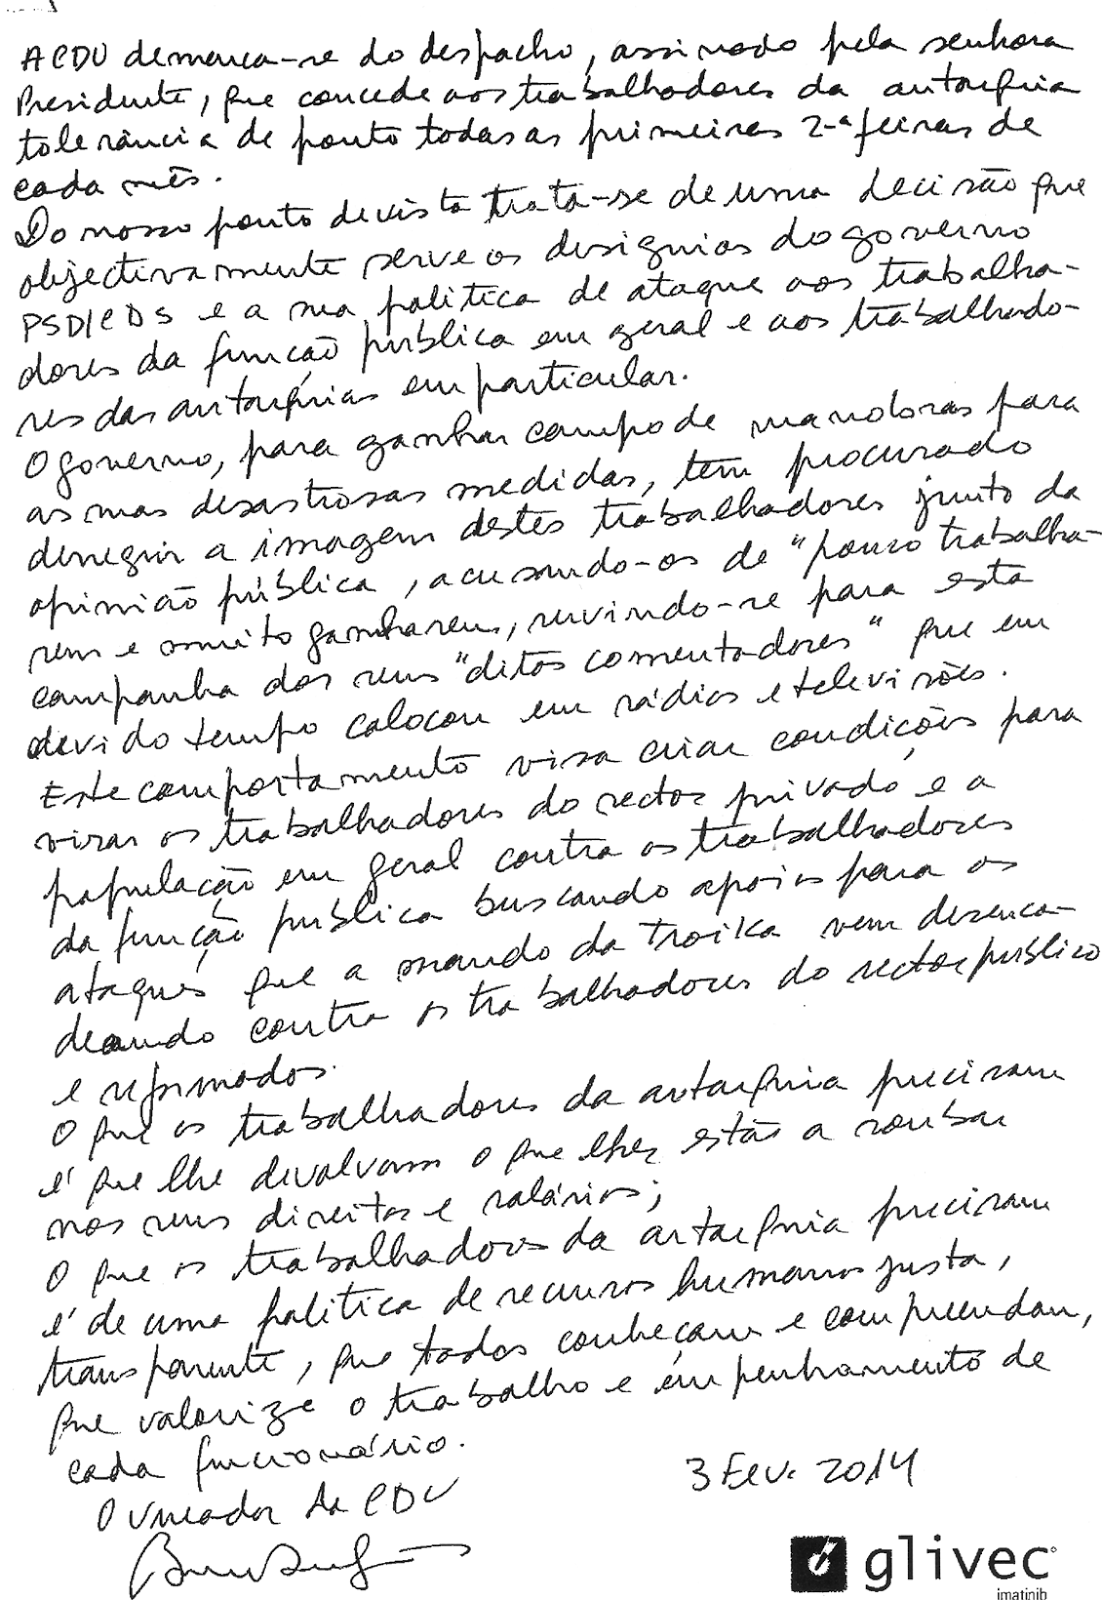 A CDU demarca-se do despacho, assinado pela senhora
Presidente, que concede aos trabalhadores da autarquia
tolerância de ponto todas as primeiras 2-ª feiras de
cada mês.
Do nosso ponto de vista trata-se de uma decisão que
objectivamente serve os designios do governo
PSD/CDS e a sua politica de ataque aos trabalha-
dores da função pública em geral e aos trabalhado-
res das autarquias em particular.
O governo, para ganhar campo de manobras para
as suas desastrosas medidas, tem procurado
denegrir a imagem destes trabalhadores junto da
opinião pública, acusando-os de "pouco trabalha-
rem e muito ganharem, servindo-se para esta
campanha dos seus "ditos comentadores" que em
devido tempo colocou em rádios e televisões.
Este comportamento visa criar condições para
virar os trabalhadores do sector privado e a
população em geral contra os trabalhadores
da função publica buscando apoios para os
ataques que a mando da troika vem desenca-
deando contra os trabalhadores do sector publico
e reformados.
O que os trabalhadores da autarquia precisam
é que lhe devolvam o que lhes estão a roubar
nos seus direitos e salários;
O que os trabalhadores da autarquia precisam
é de uma politica de recursos humanos justa,
transparente, que todos conheçam e compreendam,
que valorize o trabalho e empenhamento de
cada funcionário.
O Vereador da CDU
3 Fev. 2014
glivec
imatinib